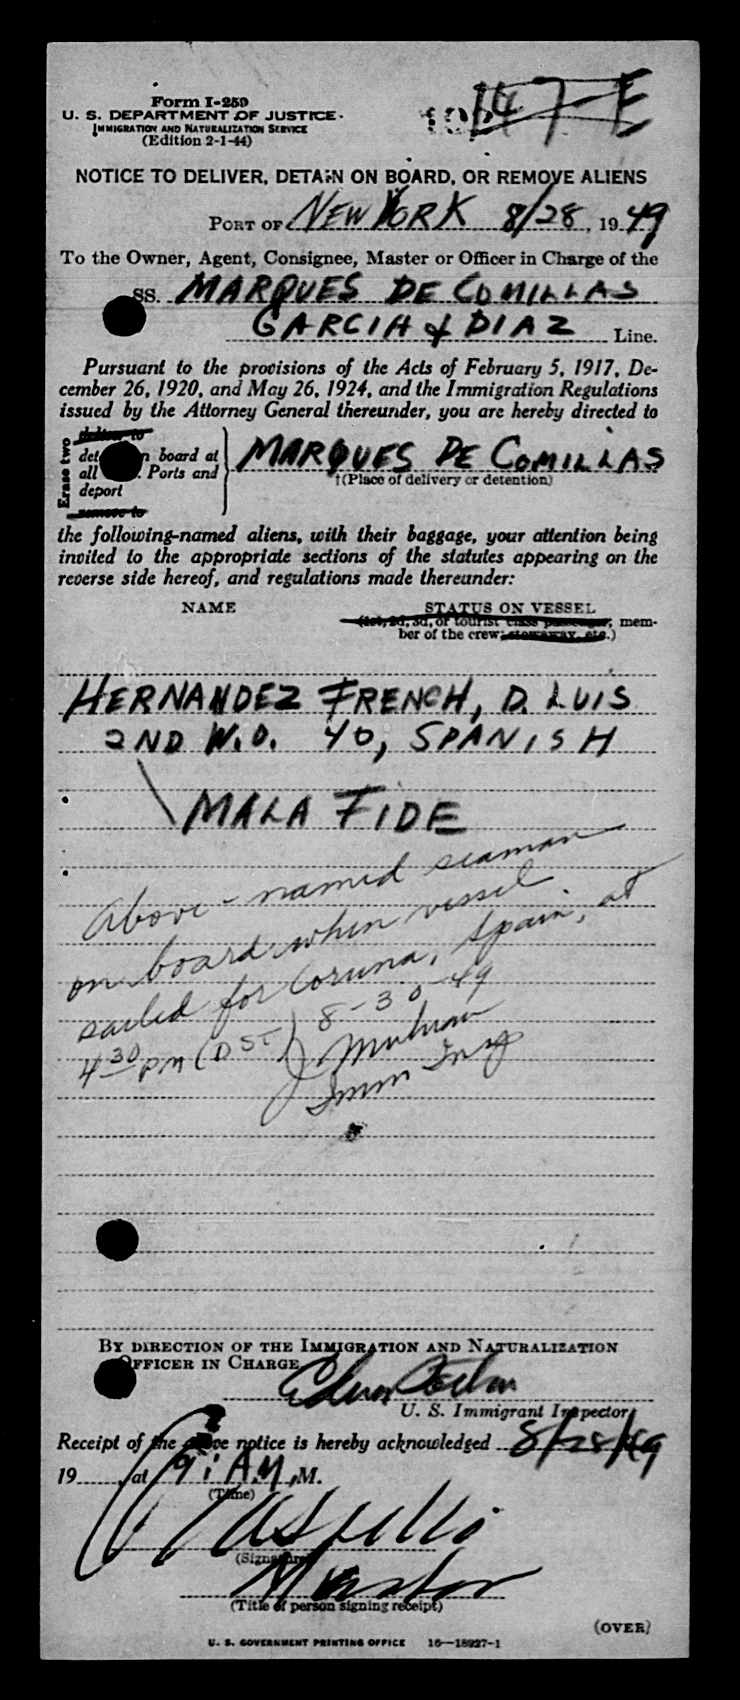 Form I-259
U. S. DEPARTMENT OF JUSTICE
IMMIGRATION AND NATURALIZATION SERVICE
(Edition 2-1-44)
147 E
NOTICE TO DELIVER, DETAIN ON BOARD, OR REMOVE ALIENS
PORT OF NEW YORK 8/28, 1949
To the Owner, Agent, Consignee, Master or Officer in Charge of the
SS. MARQUES DE COMILLAS
GARCIA & DIAZ Line.
Pursuant to the provisions of the Acts of February 5, 1917, De-
cember 26, 1920, and May 26, 1924, and the Immigration Regulations
issued by the Attorney General thereunder, you are hereby directed to
Erase two
deliver to
det n board at
all . Ports and
deport
remove to
MARQUES DE COMILLAS
†(Place of delivery or detention)
the following-named aliens, with their baggage, your attention being
invited to the appropriate sections of the statutes appearing on the
reverse side hereof, and regulations made thereunder:
NAME STATUS ON VESSEL
(1st, 2d, 3d, or tourist class passenger; mem-
ber of the crew; stowaway, etc.)
HERNANDEZ FRENCH, D. LUIS
2ND W.O. 40, SPANISH
MALA FIDE
Above-named seaman
on board when vessel
sailed for Coruna, Spain, at
4 30 PM (DST) 8-30-49
Imm Insp
BY DIRECTION OF THE IMMIGRATION AND NATURALIZATION
OFFICER IN CHARGE
U. S. Immigrant Inspector
Receipt of the above notice is hereby acknowledged 8/28/49
19 at 9: A.M. M.
(Time)
(Signature)
Master
(Title of person signing receipt)
(OVER)
U. S. GOVERNMENT PRINTING OFFICE 16—18927-1